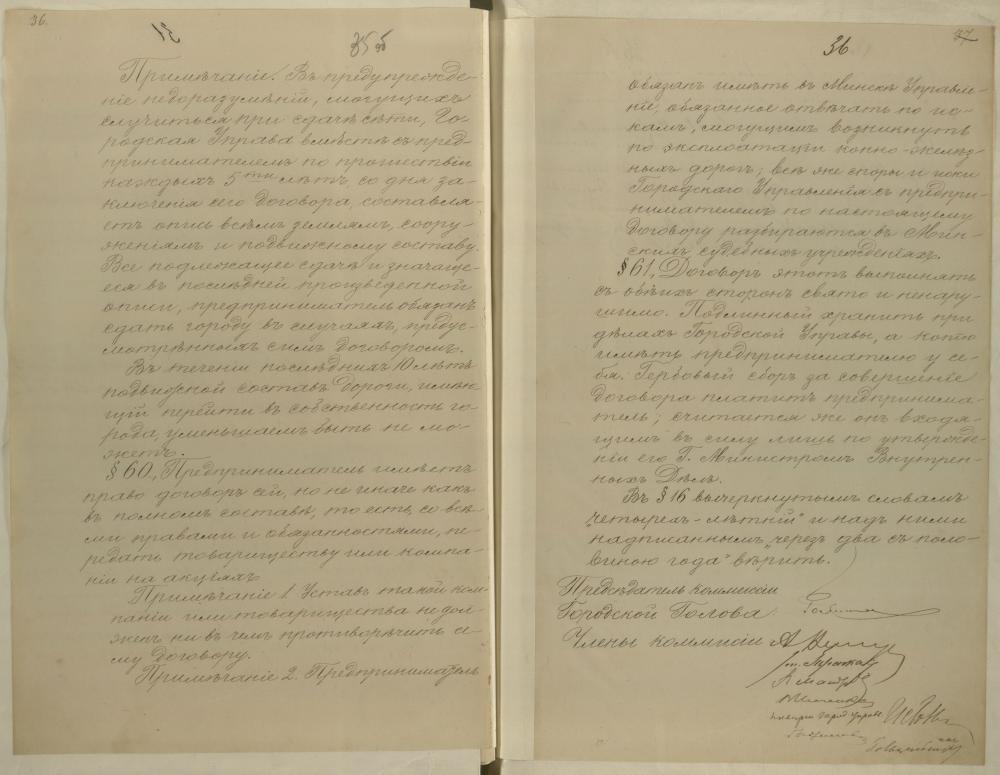 36.
35 об
Примѣчаніе! Въ предупрежде-
ніе недоразумѣній, могущихъ
случиться при сдачѣ сѣти, Го-
родская Управа вмѣстѣ съ пред-
принимателемъ по прошествіи
каждыхъ 5ти лѣтъ, со дня за-
ключенія сего договора, составля-
етъ опись всѣмъ землямъ, соору-
женіямъ и подвижному составу.
Все подлежащее сдачѣ и значаще-
еся въ послѣдней произведенной
описи, предприниматель обязанъ
сдать городу въ случаяхъ, предус-
мотрѣнныхъ симъ договоромъ.
Въ теченіи послѣднихъ 10 лѣтъ
подвижной составъ дороги, имѣю-
щій перейти въ собственность го-
рода, уменьшаемъ быть не мо-
жетъ.
§ 60., Предприниматель имѣетъ
право договоръ сей, но не иначе какъ
въ полномъ составѣ, то есть, со всѣ-
ми правами и обязанностями, пе-
редать товариществу или компа-
ніи на акціяхъ.
Примѣчаніе 1. Уставъ такой ком-
паніи или товарищества не дол-
женъ ни въ чемъ противорѣчить се-
му договору.
Примѣчаніе 2. Предприниматель
37
36
обязанъ имѣть въ Минскѣ Управле-
ніе, обязанное отвѣчать по ис-
камъ, могущимъ возникнуть
по эксплоатаціи конно-желѣз-
ныхъ дорогъ; всѣ же споры и иски
Городскаго Управленія съ предпри-
нимателемъ по настоящему
договору разбираются въ Мин-
скихъ судебныхъ учрежденіяхъ.
§ 61., Договоръ этотъ выполнять
съ обѣихъ сторонъ свято и ненару-
шимо. Подлинный хранить при
дѣлахъ Городской Управы, а копію
имѣть предпринимателю у се-
бя. Гербовый сборъ за совершеніе
договора платитъ предпринима-
тель; считается же онъ входя-
щимъ въ силу лишь по утвержде-
ніи его Г. Министромъ Внутрен-
нихъ Дѣлъ.
Въ § 16 вычеркнутымъ словамъ
„четырех-лѣтній" и надъ ними
надписаннымъ „черезъ два съ поло-
виною года" вѣрить.
Предсѣдатель коммисіи
Городской Голова
Члены коммисіи